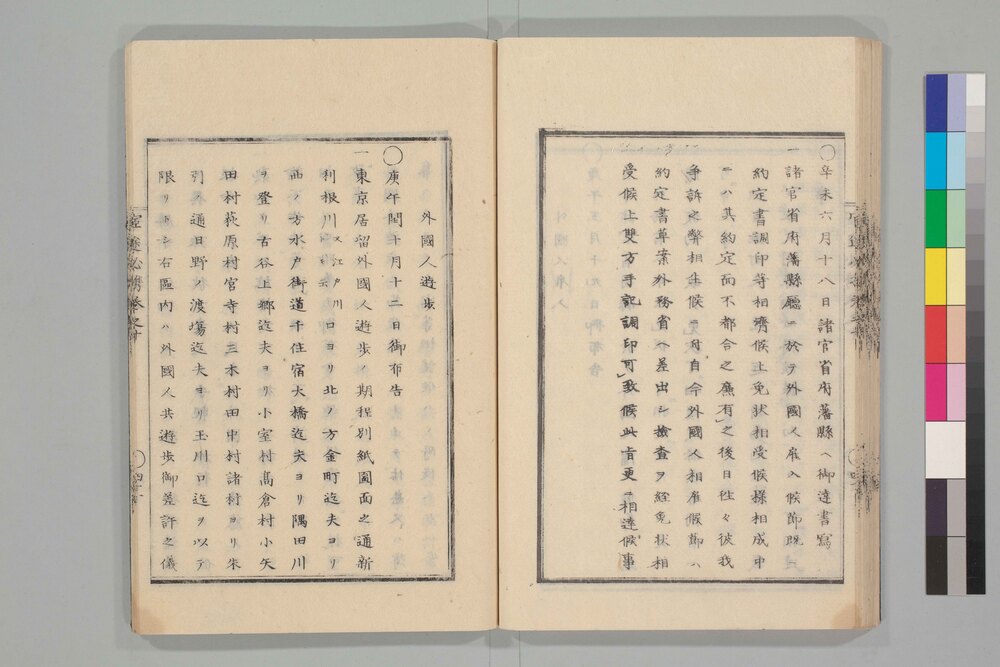 〇辛未六月十八日諸官省府藩縣ヘ御達書寫
一諸官省府藩縣廳ニ於テ外國人雇入候節既ニ
約定書調印等相濟候上免状相受候様相成申
ニハ其約定面不都合之廉有之後日往々彼我
爭訴之弊相生候ニ付自今外國人相雇候節ハ
約定書草案外務省ヘ差出シ檢查ヲ經免状相
受候上雙方手記調印可致候此旨更ニ相達候事
外國人遊歩
〇庚午閏十月十二日御布告
一東京居留外國人遊歩ノ期程別紙圖面之通新
利根川又江戸川口ヨリ北ノ方金町迄夫ヨリ
西ノ方水戸街道千住宿大橋迄夫ヨリ隅田川
ヲ登リ古谷上郷迄夫ヨリ小室村髙倉村小矢
田村萩原村宮寺村三木村田中村諸村ヨリ朱
引ノ通日野ノ渡塲迄夫ヨリ玉川口迄ヲ以テ
限リ右區内ハ外國人共遊歩御差許之儀